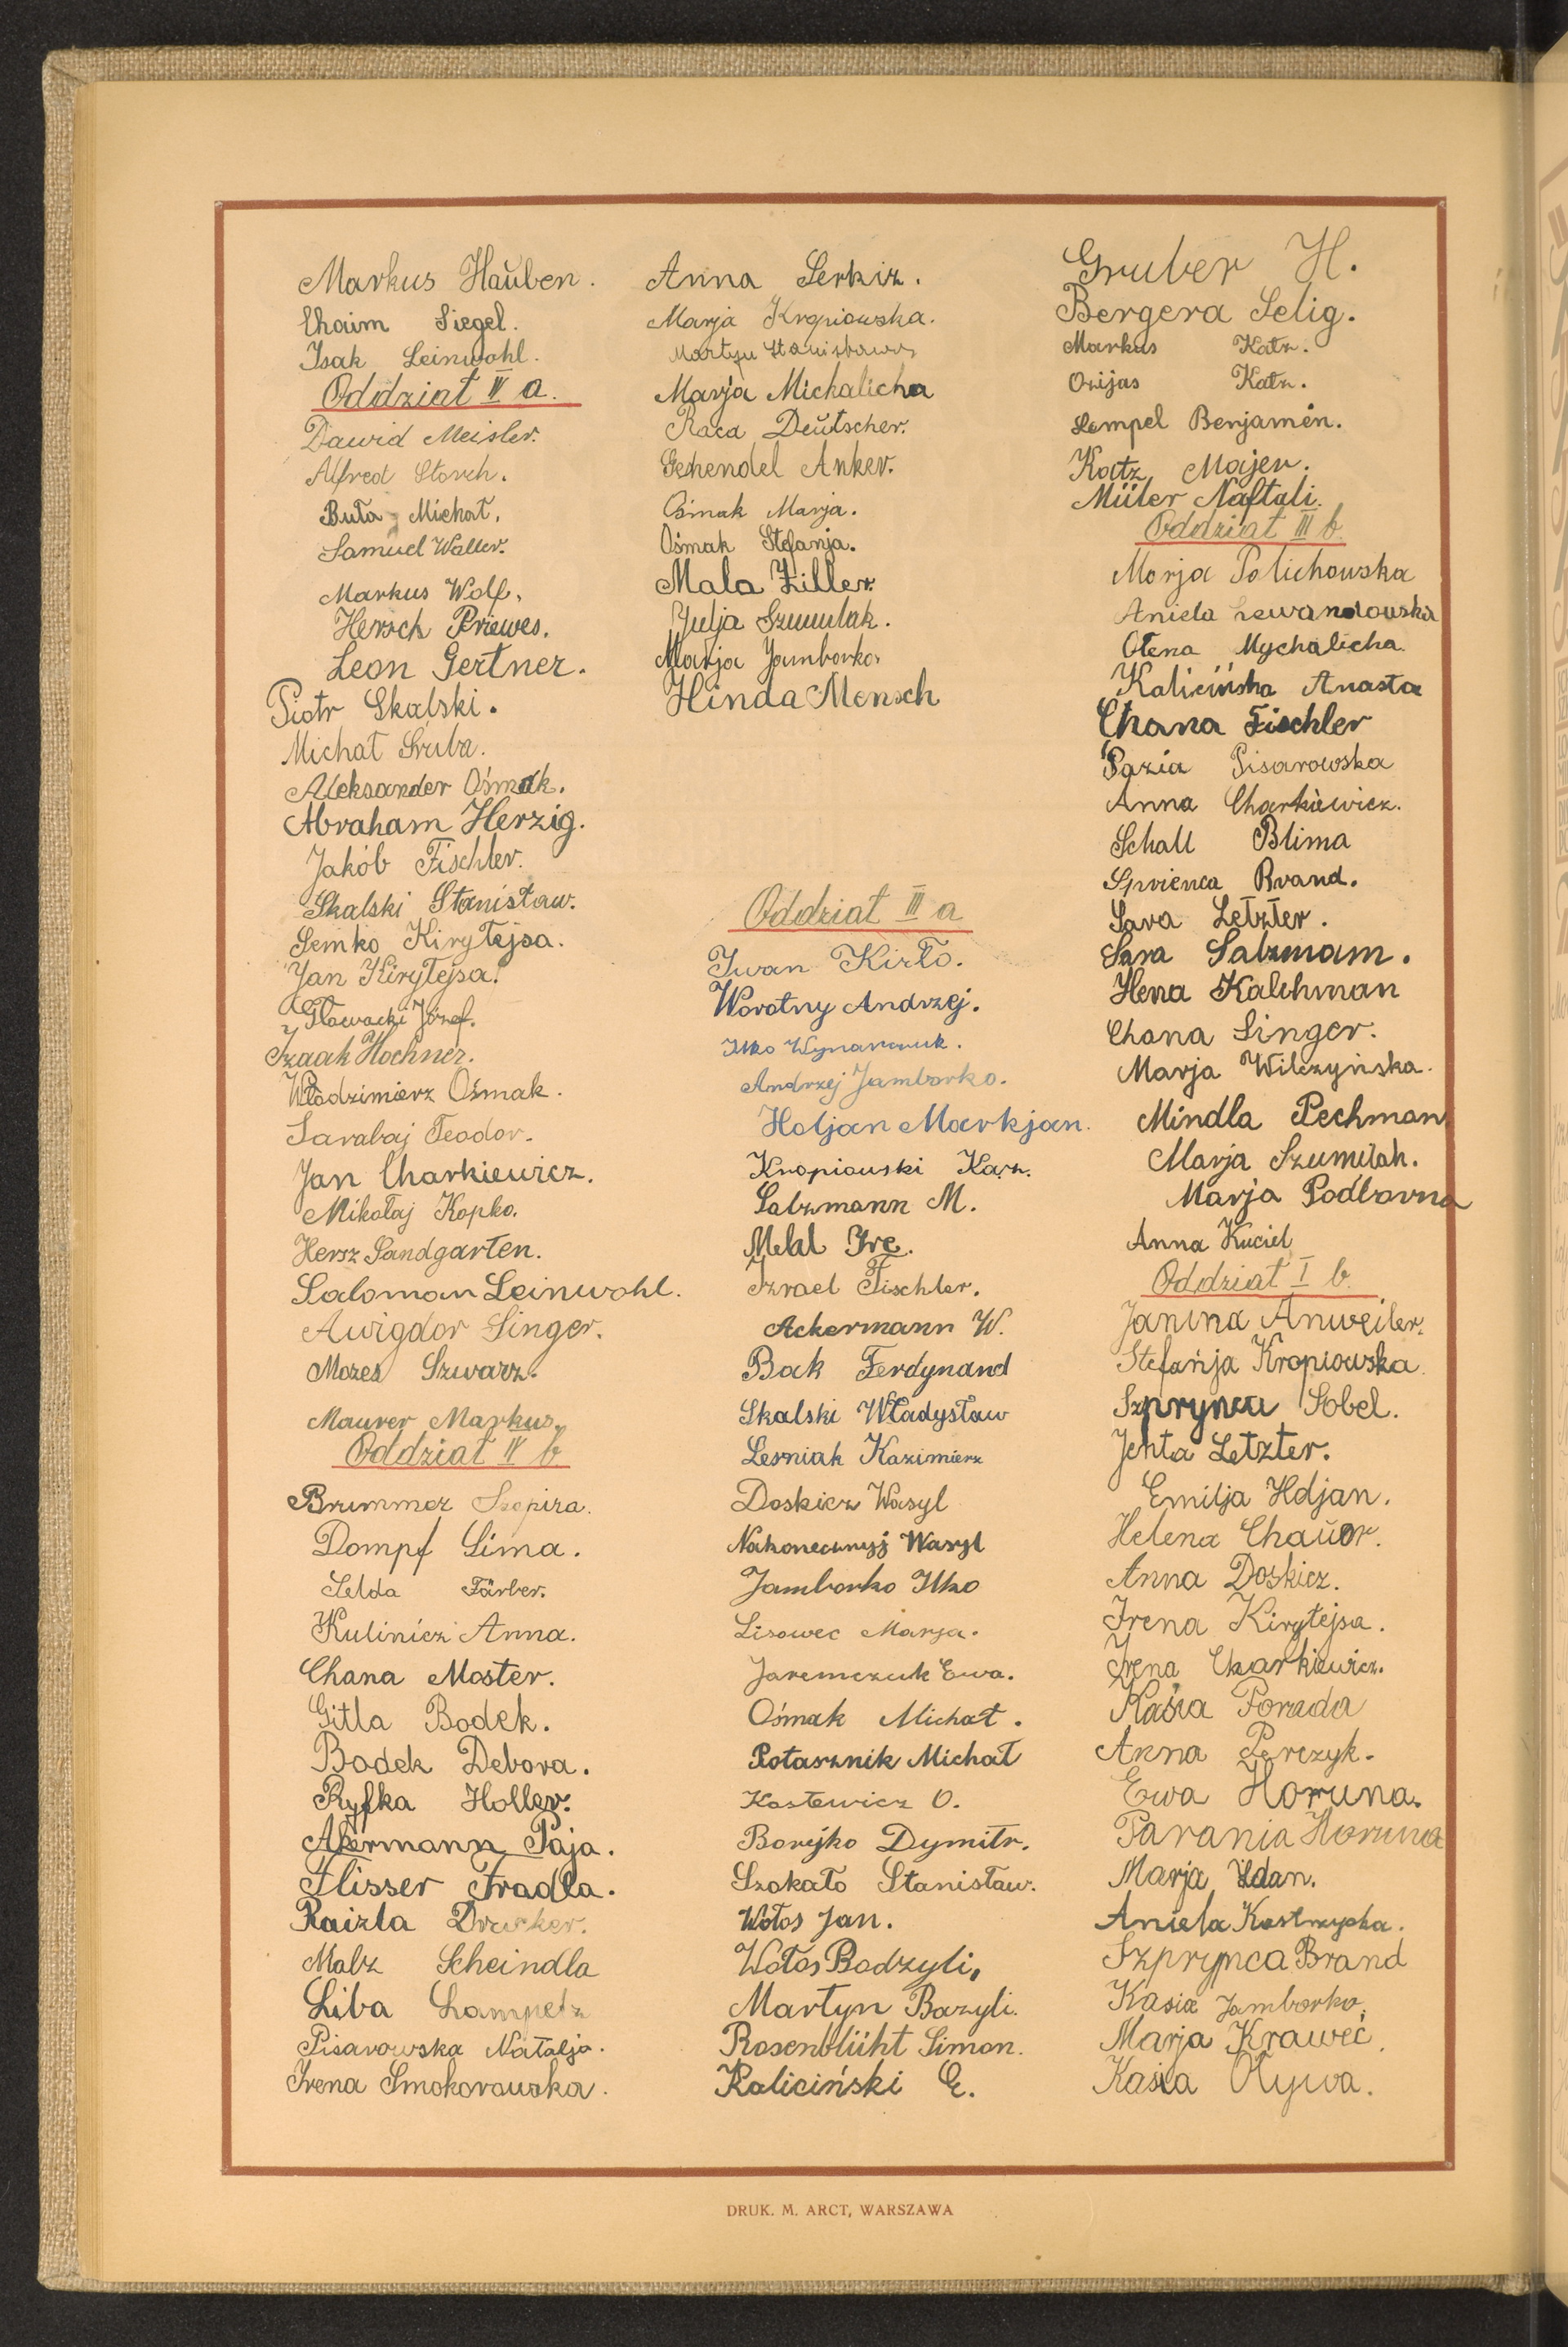 Markus Haŭben.
Chaim Siegel.
Isak Leinwohl.
Oddział IV a.
Dawid Meisler.
Alfred Storch.
Buła Michał.
Samuel Waller.
Markus Wolf.
Hersch Priewes.
Leon Gertner.
Piotr Skalski.
Michał Sruba.
Aleksander Ośmak.
Abraham Herzig.
Jakób Fischler.
Skalski Stanisław.
Semko Kirytejsa.
Jan Kirytejsa.
Gławacki Józef.
Izaak Hochner.
Włodzimierz Ośmak.
Sarabaj Teodor.
Jan Charkiewicz.
Mikołaj Kopko.
Hersz Sandgarten.
Saloman Leinwohl.
Awigdor Singer.
Mozes Szwarz.
Maurer Markus.
Oddział IV b
Brummer Szapira.
Dompf Sima.
Selda Färber.
Kulinicz Anna.
Chana Moster.
Gitla Bodek.
Bodek Debora.
Ryfka Holler.
Akermann Paja.
Flisser Fradla.
Raizla Drucker.
Malz Scheindla
Liba Lampelz
Pisarowska Natalja.
Irena Smokorowska.
Anna Serkiz.
Marja Kropiowska.
Martyn Stanisława
Marja Michalicha
Raca Deŭtscher.
Schendel Anker.
Ośmak Marja.
Ośmak Stefanja.
Mala Ziller.
Julja Szumlak.
Marja Jamborko.
Hinda Mensch
Oddział III a
Iwan Kirło.
Worotny Andrzej.
Ilko Wynarczuk.
Andrzej Jamborko.
Holjan Markjan.
Kropiouski Kaz.
Salzmann M.
Mehl Ire.
Izrael Fischler.
Ackermann W.
Bak Ferdynand
Skalski Władysław
Lesniak Kazimierz
Doskicz Wasyl
Nakonecznyj Wasyl
Jamborko Ilko
Lisowec Marja.
Jaremczuk Ewa.
Ośmak Michał.
Potasznik Michał
Kostewicz O.
Borejko Dymitr.
Szokało Stanisław.
Wołos Jan.
Wołos Bodzyli,
Martyn Bazyli.
Rosenblüht Simon.
Kaliciński E.
Gruber H.
Bergera Selig.
Markus Katz.
Ozijas Katz.
Lempel Benjamin.
Katz Majer.
Müler Naftali.
Oddział III b.
Marja Polichowska
Aniela Lewandowska
Ołena Mychalicha
Kalicińska Anasta
Chana Fischler
Pazia Pisarowska
Anna Charkiewicz.
Schall Blima
Sprienca Brand.
Sara Letzter.
Sara Salzmam.
Hena Kalchman
Chana Singer.
Marja Wilczyńska.
Mindla Pechman
Marja Szumilah.
Marja Podborna
Anna Kuciel
Oddział I b.
Janina Anweiler.
Stefańja Kropiowska.
Szprynca Sobel.
Jenta Letzter.
Emilja Hdjan.
Helena Chaŭor.
Anna Doskicz.
Irena Kirytejsa.
Irena Charkiewicz.
Kaśia Porada
Anna Perczyk.
Ewa Horuna.
Parania Horuna
Marja Udan.
Aniela Kostrzycka.
Szprynca Brand
Kasia Jamborko.
Marja Kraweć.
Kasia Rywa.
DRUK. M. ARCT, WARSZAWA